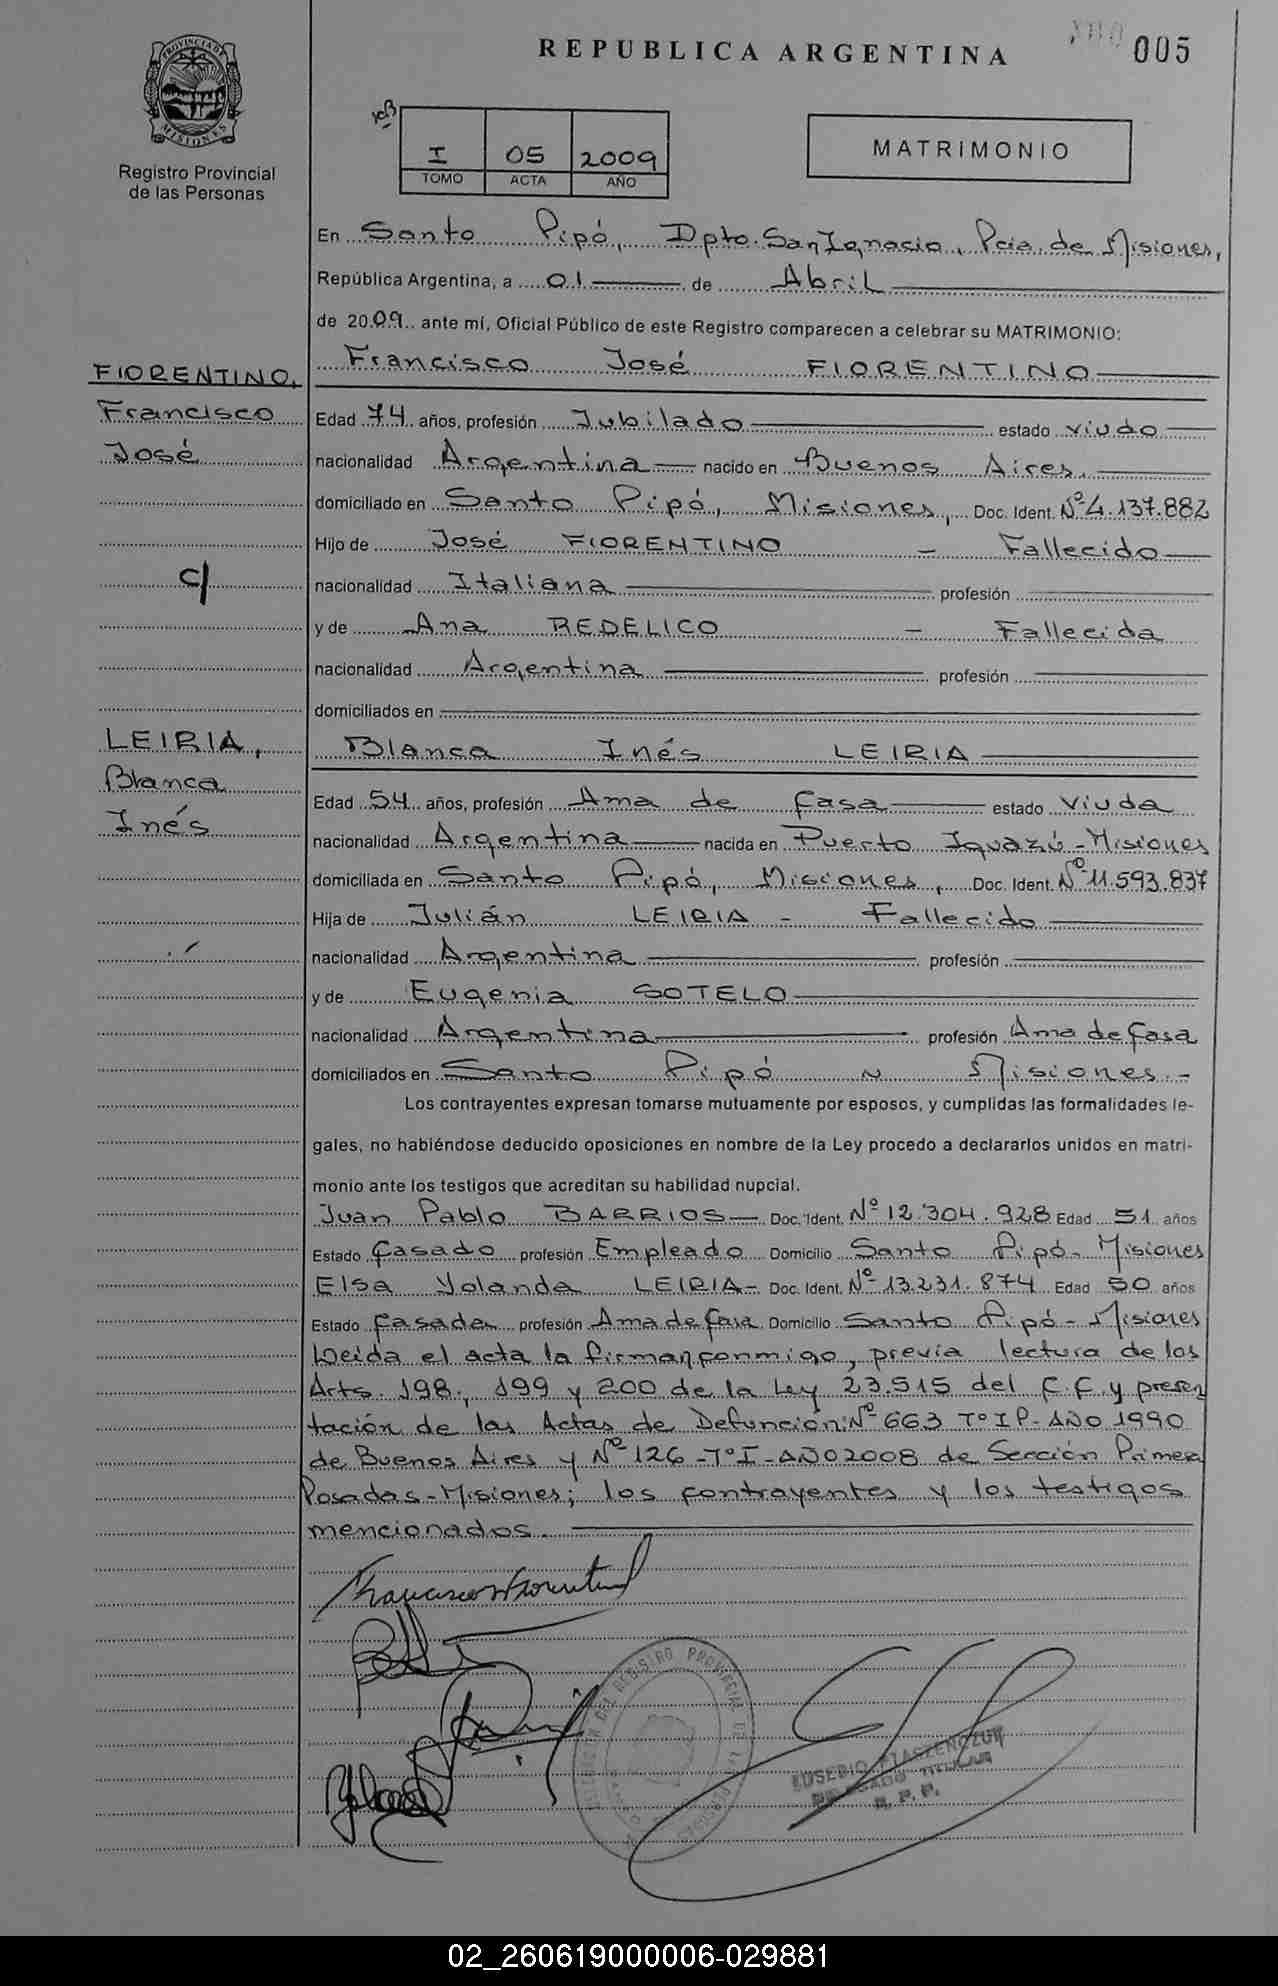 REPUBLICA ARGENTINA
005
PROVINCIA DE
MISIONES
Registro Provincial
de las Personas
I 05 2009
TOMO ACTA AÑO
MATRIMONIO
En Santo Pipó, Dpto. San Ignacio, Pcia. de Misiones,
República Argentina, a 01 de Abril
de 2009 ante mí, Oficial Público de este Registro comparecen a celebrar su MATRIMONIO:
FIORENTINO,
Francisco
José
c/
LEIRIA,
Blanca
Inés
Francisco José FIORENTINO
Edad 74 años, profesión Jubilado estado viudo
nacionalidad Argentina nacido en Buenos Aires.
domiciliado en Santo Pipó, Misiones, Doc. Ident. Nº 4.137.882
Hijo de José FIORENTINO - Fallecido
nacionalidad Italiana profesión
y de Ana REDELICO - Fallecida
nacionalidad Argentina profesión
domiciliados en
Blanca Inés LEIRIA
Edad 54 años, profesión Ama de Casa estado viuda
nacionalidad Argentina nacida en Puerto Iguazú - Misiones
domiciliada en Santo Pipó, Misiones, Doc. Ident. Nº 11.593.837
Hija de Julián LEIRIA - Fallecido
nacionalidad Argentina profesión
y de Eugenia SOTELO
nacionalidad Argentina profesión Ama de Casa
domiciliados en Santo Pipó ~ Misiones.-
Los contrayentes expresan tomarse mutuamente por esposos, y cumplidas las formalidades le-
gales, no habiéndose deducido oposiciones en nombre de la Ley procedo a declararlos unidos en matri-
monio ante los testigos que acreditan su habilidad nupcial.
Juan Pablo BARRIOS - Doc. Ident. Nº 12.304.928 Edad 51 años
Estado Casado profesión Empleado Domicilio Santo Pipó - Misiones
Elsa Yolanda LEIRIA - Doc. Ident. Nº 13.231.874 Edad 50 años
Estado Casada profesión Ama de Casa Domicilio Santo Pipó - Misiones
Leida el acta la firman conmigo, previa lectura de los
Arts. 198, 199 y 200 de la Ley 23.515 del C.C. y presen
tación de las Actas de Defunción: Nº 663 Tº I P- AÑO 1990
de Buenos Aires y Nº 126 - Tº I - AÑO 2008 de Sección Primera
Posadas - Misiones; los contrayentes y los testigos
mencionados.
REGISTRO PROVINCIAL DE LAS PERSONAS
EUSEBIO PTASZENCZUK
DELEGADO TITULAR
R. P. P.
02_260619000006-029881